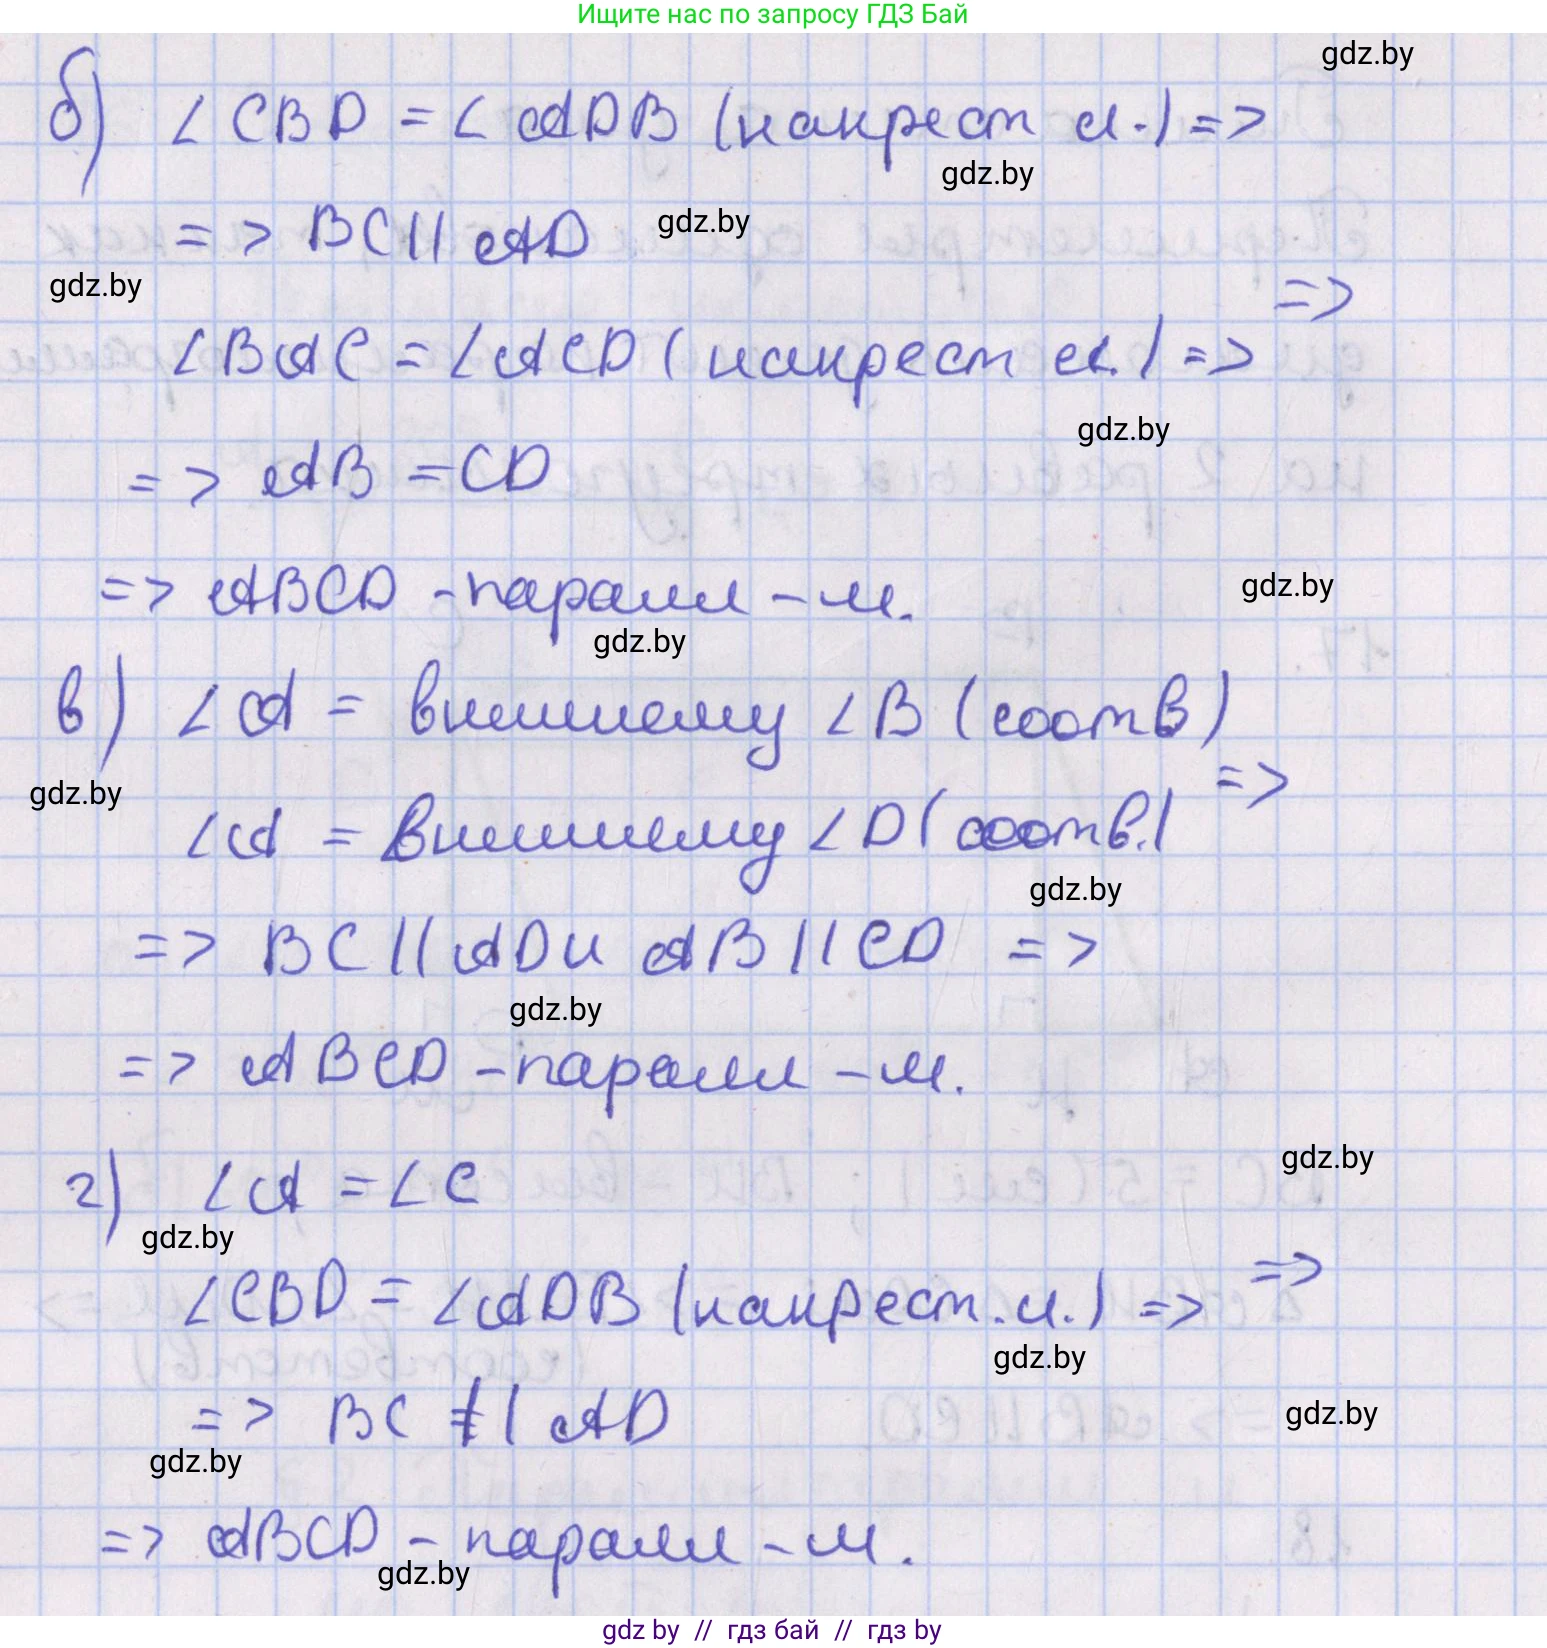 Ищите нас по запросу ГДЗ Бай
gdz.by
б) ∠CBD = ∠ADB (накрест л.) =>
gdz.by
=> BC || AD
gdz.by
gdz.by
=>
∠BAC = ∠ACD (накрест л.) =>
gdz.by
=> AB = CD
gdz.by
=> ABCD - паралл - м.
gdz.by
в) ∠A = внешнему ∠B (соотв)
=>
gdz.by
∠A = внешнему ∠D (соотв.)
gdz.by
=> BC || AD и AB || CD =>
gdz.by
=> ABCD - паралл - м.
gdz.by
г) ∠A = ∠C
gdz.by
=>
∠CBD = ∠ADB (накрест. л.) =>
gdz.by
=> BC || AD
gdz.by
gdz.by
=> ABCD - паралл - м.
gdz.by
gdz by // гдз бай // гдз by